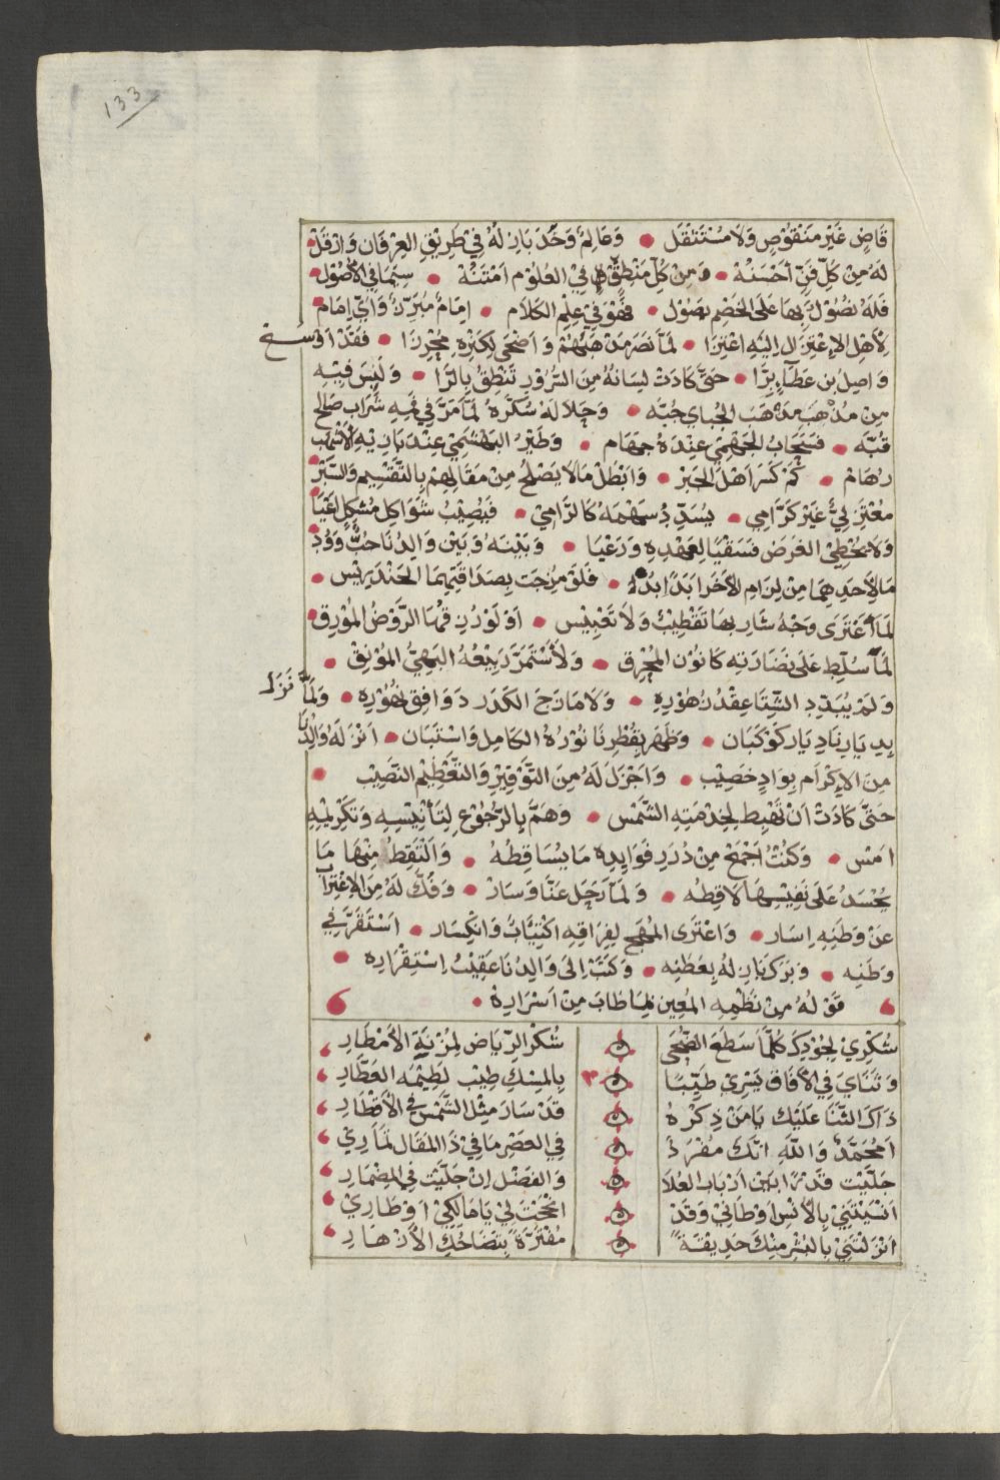 133
قَاضٍ غَيْر مَنْقُوصٍ وَلَا مُسْتَثْقَل • وَعَالِمٌ وَخَّدَ بَازِلهُ فِيْ طَرِيْقِ العِرْفَان وَارْقَلْ •
لهُ مِنْ كُلِّ فَنٍّ أحْسَنُهْ • وَمِنْ كُلِّ مَنْطِقٍ فِي العُلُوْم اَمْتَنُهْ • سِيَّمَا فِي الأُصُوْل •
فَلَهُ نُصُوْلٌ بِهَا عَلَى الخَصْم يَصُوْل • فَهُوَ فِيْ عِلْمِ الكَلَام • اِمَامٌ مُبَرِّزٌ وَايُّ اِمَام •
لِأَهْلِ الاِعْتِزَال اِلَيْهِ اعْتِزَا • لمَّا نَصَرَ مَذْهَبَهُمْ وَاَضْحَى لِكَنْزِهِ مُحْرِزَا • فَقَدْ اَوْسَخ
وَاصِلُ بْن عَطَآءٍ بِرَّا • حَتَّى كَادَتْ لِسَانُهُ مِنَ السُّرُوْرِ تَنْطِقُ بِالرَّا • وَلَيْسَ فِيْهِ
مِنْ مَذْهَبٍ مَذْهَبَ الجُبَّاي جُبَّه • وَحَلَا لَهُ سُكَّرهُ لمَّا مَرَّ فِي فَمِهِ شَرَاب صَالِح
قُبَّه • فَسَحَابُ الجَهْمِيّ عِنْدَهُ جَهَام • وَطَيْرُ البَهْشَمِيْ عِنْدَ بَازِيْهِ الأَشْهَب
رُهَامْ • كَمْ كَسَرَ اَهْلَ الجَبْرْ • وَابْطَلَ مَا لَا يَصْلُحُ مِنْ مَقَالِهِمْ بِالتَّقْسِيْم وَالسَّبْرْ •
مُعْتَزِلِيٌّ غَيْر كَرَّامِي • يُسَدِّدُ سَهْمَهُ كَالرَّامِيْ • فَيُصِيْبُ شَوَاكِل مُشْكِلٍ اعْيَا
وَلَا يُخْطِئ الغَرَضْ فَسَقْيًا لِعَهْدِهِ وَرَعْيَا • وَبَيْنَهُ وَبَيْنَ وَالِدُنَا حُبٌّ وَوُدْ •
مَا لِأَحَدِهِمَا مِنْ لِزَامِ الآخَرِ ابَدًا بُدْ • فَلَوْ مُزِجَتْ بِصَدَاقَتِهِمَا الخَنْدَرِيْس •
لمَا اعْتَرَى وَجْهُ شَارِبهَا تَقْطِيْبْ وَلَا تَعْبِيْس • اَوْ لَوْ زُرِقهَا الرَّوْضُ المُوْرِق •
لمَا سُلِّط عَلَى نَضَارَتِهِ كَانُوْن المُحْرِق • وَلَاسْتَمَرَّ رَبِيْعُهُ البَهِيُّ المُوْنِقْ •
وَلمْ يُبَدِّدِ الشِّتَا عِقْدُ زُهُوْرِهِ • وَلَا مَازَجَ الكَدَر دَوَافِقَ نُهُوْرِهِ • وَلَمَّا نَزَلَ
بِدِيَارِنَا دِيَار كَوْكَبَان • وَظَهَرَ بِقُطْرِنَا نُوْرُهُ الكَامِل وَاسْتَبَان • انْزَلهُ وَالِدُنَا
مِنَ الاِكْرَام بِوَادٍ خَصِيْب • وَاَجْزَلَ لَهُ مِنَ التَّوْقِيْرِ وَالتَّعْظِيْم النَّصِيْب •
حَتَّى كَادَتْ اَنْ تَهْبِط لِخِدْمَتِهِ الشَّمْس • وَهَمَّ بِالرُّجُوْعِ لِتَأْنِيْسِهِ وَتَكْرِيْمِهِ
اَمْس • وَكُنْتُ اَجْمَعُ مِنْ دُرَرِ فَوَايِدِهِ مَا يُسَاقِطُهُ • وَالْتَقِطُ مِنْهَا مَا
يُحْسَدُ عَلَى نَفِيْسِهَا لَاقِطُه • وَلَمَّا رَحَلَ عَنَّا وَسَارْ • وَفُكَّ لَهُ مِنَ الاِغْتِرَاب
عَنْ وَطَنِهِ اِسَار • وَاعْتَرَى المُهَج لِفِرَاقِهِ اكْتِيَابٌ وَانْكِسَار • اسْتَقَرَّ فِي
وَطَنِه • وَبَرَكَ بَازِلهُ بِعَطَنِه • وَكَتَبَ اِلَى وَالِدُنَا عَقِيْبُ اِسْتِقْرَارِه •
قَوْلهُ مِنْ نَظْمِهِ المُعِيْن لمِا طَابَ مِنْ اَسْرَارِهْ •
شُكْرِيْ لِجُوْدِكَ كُلَّمَا سَطَعَ الضُّحَى ۞ شُكْرُ الرِّيَاض لِمُزْنَةِ الأَمْطَارِ
وَثَنَايَ فِي الآفَاقِ يَسْرِيْ طَيِّبًا ۞ بِالمِسْكِ طِيْبِ لَطِيْمَهِ العَطَّارِ
ذَاكَ الثَّنَا عَلَيْكَ يَا مَنْ ذِكْرُهُ ۞ قَدْ سَارَ مِثْل الشَّمْسِ فِي الأَقْطَارِ
اَمُحَمَّدٌ وَاللَّهِ انَّكَ مُفْرَدٌ ۞ فِي العَصْرِ مَا فِيْ ذَا المَقَال تَمَارِيْ
جَلَّيْت قَدْرًا بَيْن اَرْبَاب العُلَا ۞ وَالفَضْل اِنْ جَلَّيْت فِي المِضْمَارِ
انْسَيْتَنِيْ بِالأُنْسِ اَوْطَانِيْ وَقَدْ ۞ انْجَحْتَ لِيْ يَا مَالِكِيْ اَوْطَارِيْ
انْزَلْتَنِيْ بِالبِشْرِ مِنْكَ حَدِيْقَةً ۞ مُفْتَرَّةً بِتَضَاحُكِ الأَزْهَارِ